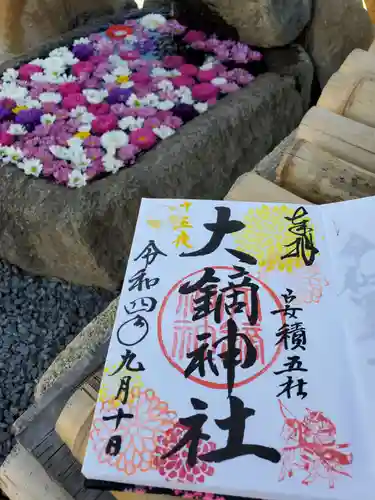 奉拝
安積五社
大鏑神社
十五夜
令和四年九月十日